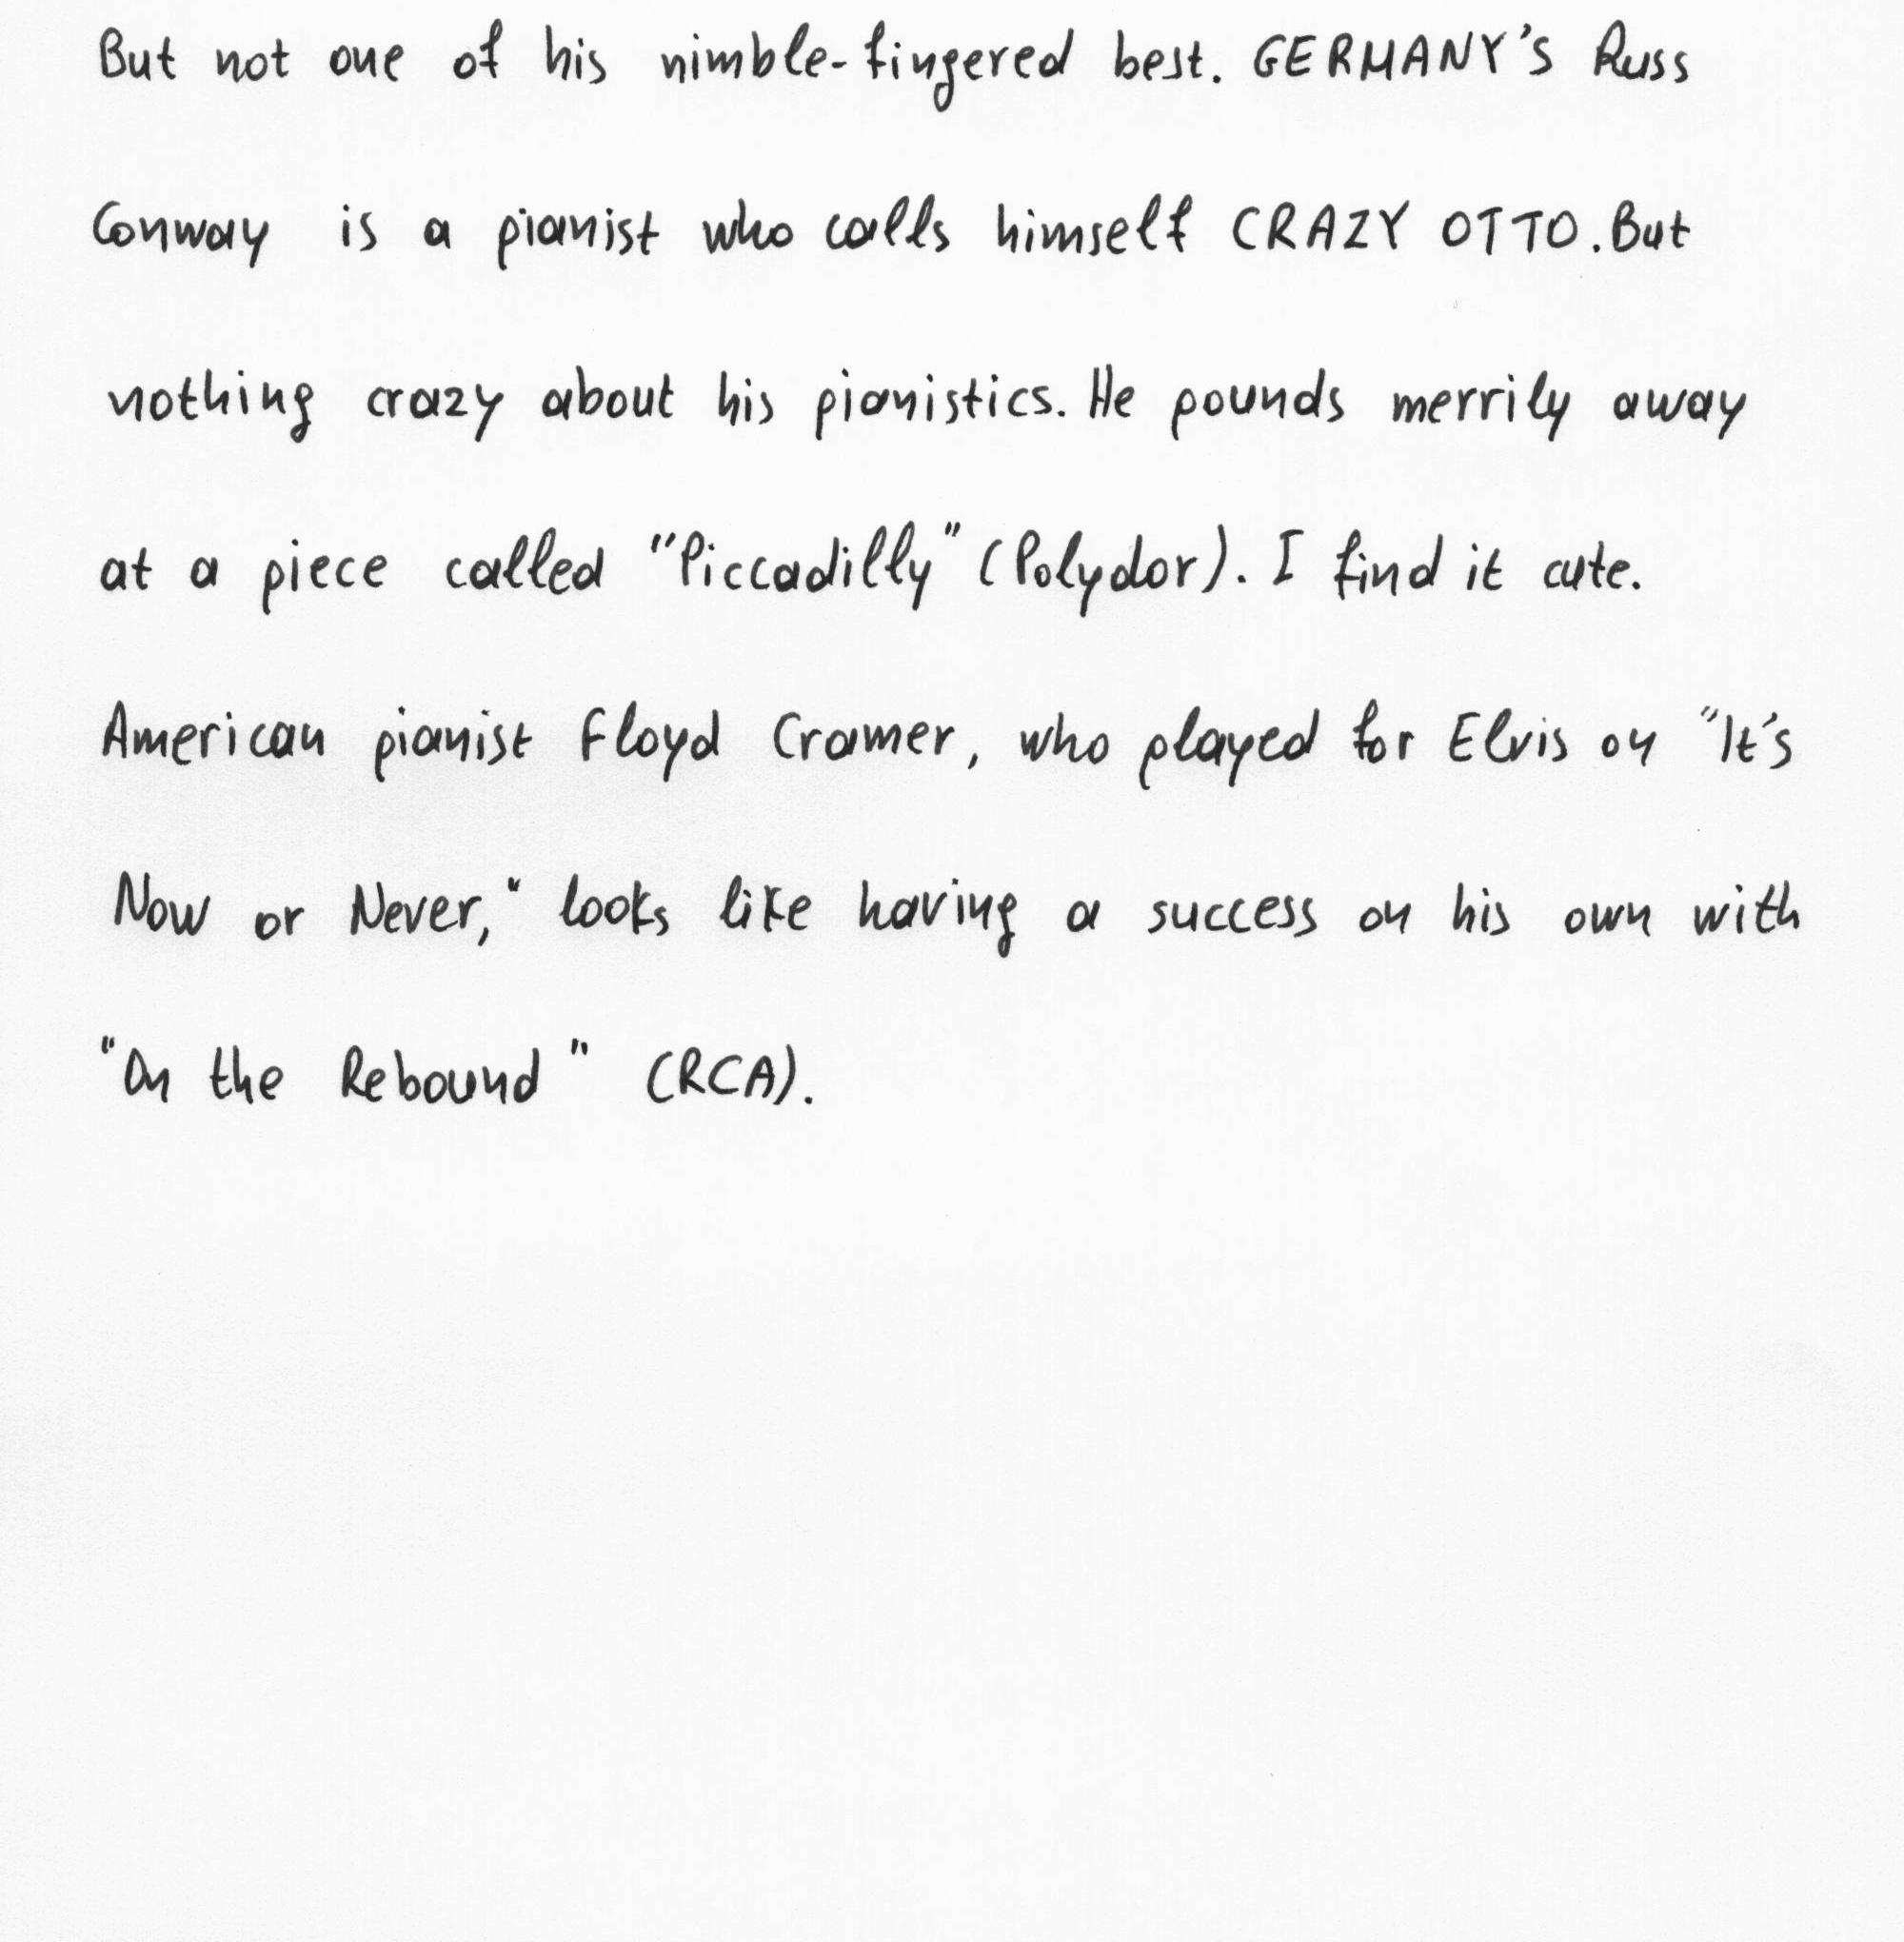 But not one of his nimble-fingered best. GERMANY'S Russ
Conway is a pianist who calls himself CRAZY OTTO. But
nothing crazy about his pianistics. He pounds merrily away
at a piece called "Piccadilly" (Polydor). I find it cute.
American pianist Floyd Cramer, who played for Elvis on "It's
Now or Never," looks like having a success on his own with
"On the Rebound" (RCA).